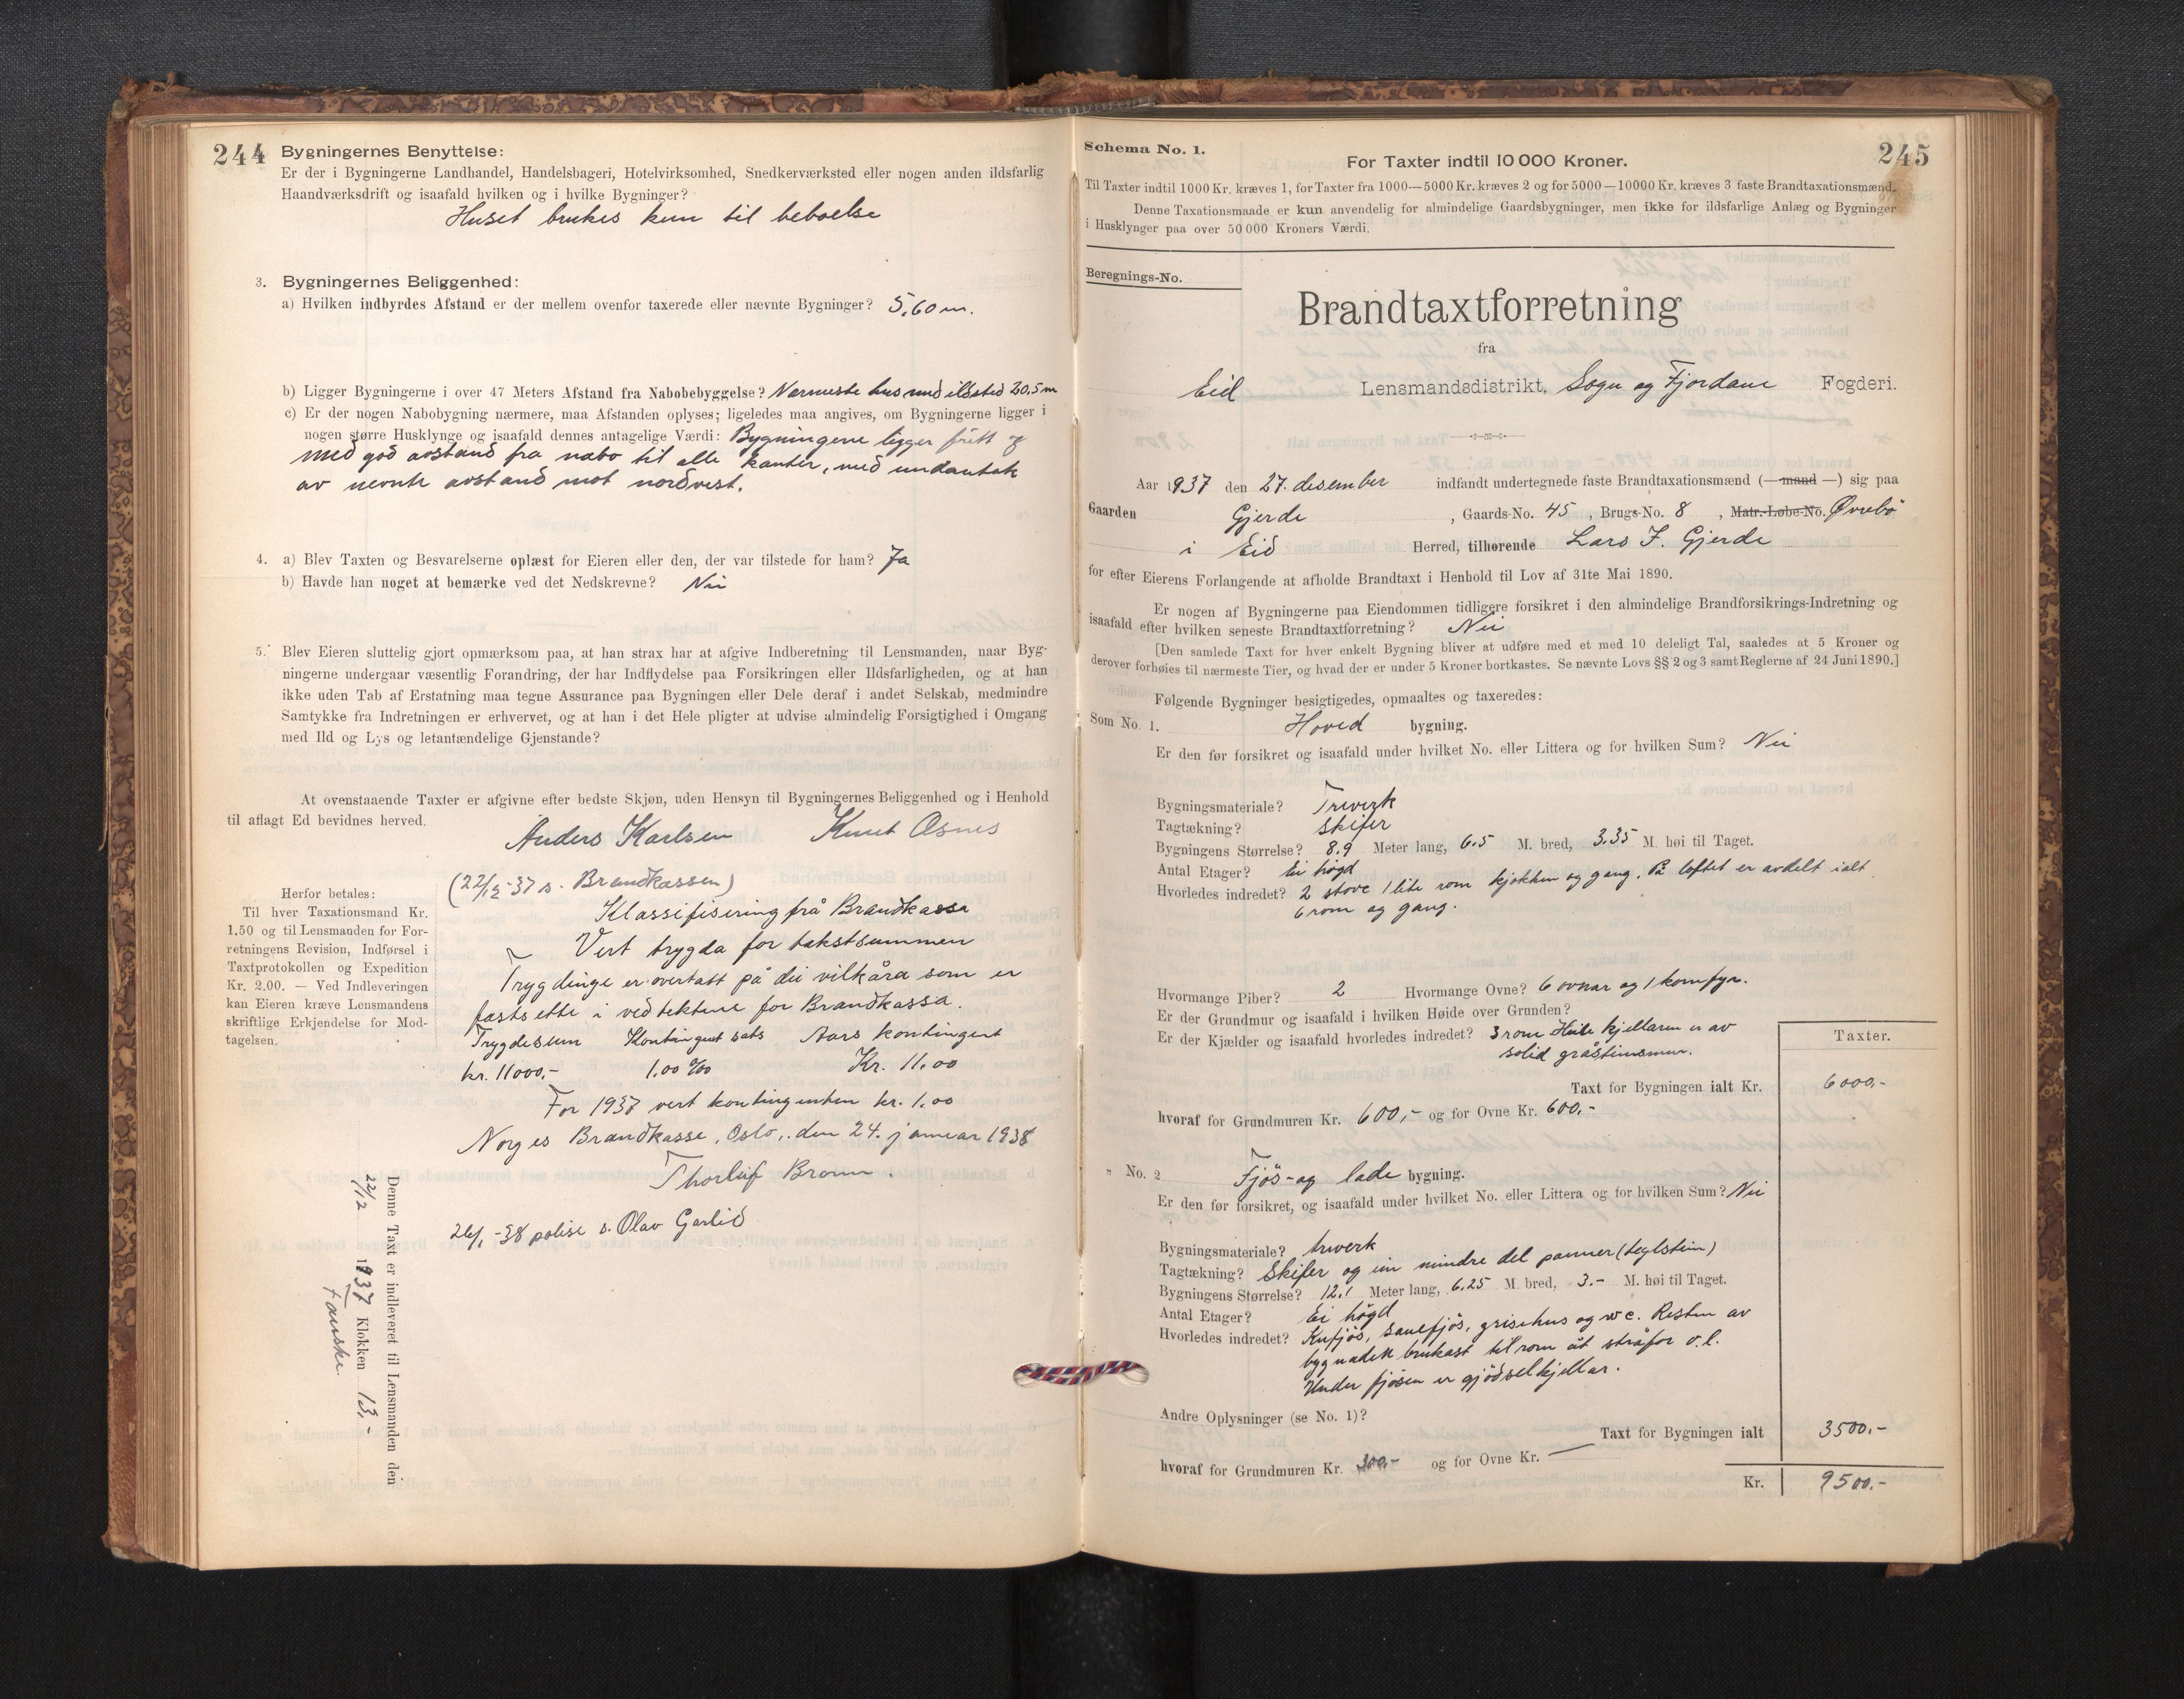 244
Bygningernes Benyttelse:
Er der i Bygningerne Landhandel, Handelsbageri, Hotelvirksomhed, Snedkerværksted eller nogen anden ildsfarlig
Haandværksdrift og isaafald hvilken og i hvilke Bygninger?
Huset brukes kun til beboelse
3. Bygningernes Beliggenhed:
a) Hvilken indbyrdes Afstand er der mellem ovenfor taxerede eller nævnte Bygninger? 5,60 m.
b) Ligger Bygningerne i over 47 Meters Afstand fra Nabobebyggelse? Nærmeste hus med ildsted 20,5 m
c) Er der nogen Nabobygning nærmere, maa Afstanden oplyses; ligeledes maa angives, om Bygningerne ligger i
nogen større Husklynge og isaafald dennes antagelige Værdi: Bygningene ligger fritt og
med god avstand fra nabo til alle kanter, med undantak
av nevnte avstand mot nordvest.
4. a) Blev Taxten og Besvarelserne oplæst for Eieren eller den, der var tilstede for ham? Ja
b) Havde han noget at bemærke ved det Nedskrevne? Nei
5. Blev Eieren sluttelig gjort opmærksom paa, at han strax har at afgive Indberetning til Lensmanden, naar Byg-
ningerne undergaar væsentlig Forandring, der har Indflydelse paa Forsikringen eller Ildsfarligheden, og at han
ikke uden Tab af Erstatning maa tegne Assurance paa Bygningen eller Dele deraf i andet Selskab, medmindre
Samtykke fra Indretningen er erhvervet, og at han i det Hele pligter at udvise almindelig Forsigtighed i Omgang
med Ild og Lys og letantændelige Gjenstande?
At ovenstaaende Taxter er afgivne efter bedste Skjøn, uden Hensyn til Bygningernes Beliggenhed og i Henhold
til aflagt Ed bevidnes herved.
Anders Karlsen Knut Osnes
(22/12-37 s. Brandkassen)
Herfor betales:
Til hver Taxationsmand Kr.
1,50 og til Lensmanden for For-
retningens Revision, Indførsel i
Taxtprotokollen og Expedition
Kr. 2.00. — Ved Indleveringen
kan Eieren kræve Lensmandens
skriftlige Erkjendelse for Mod-
tagelsen.
Klassifisering frå Brandkassa
Vert trygda for takstsummen
Trygdinge er overtatt på dei vilkåra som er
fastsette i vedtektene for Brandkassa.
Trygdesum Kontingent sats Aars kontingent
kr. 11000,- 1.00 ‰ Kr. 11.00
For 1937 vert kontingenten kr. 1,00
Norges Brandkasse, Oslo, den 24. januar 1938
Thorleif Brown.
26/1-38 polise s. Olav Garlid
Denne Taxt er indleveret til Lensmanden den
22/12 1937 Klokken 13,-
Fauske.
245
Schema No. 1.
For Taxter indtil 10 000 Kroner.
Til Taxter indtil 1000 Kr. kræves 1, for Taxter fra 1000—5000 Kr. kræves 2 og for 5000—10000 Kr. kræves 3 faste Brandtaxationsmænd.
Denne Taxationsmaade er kun anvendelig for almindelige Gaardsbygninger, men ikke for ildsfarlige Anlæg og Bygninger
i Husklynger paa over 50 000 Kroners Værdi.
Beregnings-No.
Brandtaxtforretning
fra
Eid Lensmandsdistrikt, Sogn og Fjordane Fogderi.
Aar 1937 den 27. desember indfandt undertegnede faste Brandtaxationsmænd (—mand—) sig paa
Gaarden Gjerde, Gaards-No. 45, Brugs-No. 8, Matr.-Løbe-No. Øvrebö
i Eid Herred, tilhørende Lars J. Gjerde
for efter Eierens Forlangende at afholde Brandtaxt i Henhold til Lov af 31te Mai 1890.
Er nogen af Bygningerne paa Eiendommen tidligere forsikret i den almindelige Brandforsikrings-Indretning og
isaafald efter hvilken seneste Brandtaxtforretning? Nei
[Den samlede Taxt for hver enkelt Bygning bliver at udføre med et med 10 deleligt Tal, saaledes at 5 Kroner og
derover forhøies til nærmeste Tier, og hvad der er under 5 Kroner bortkastes. Se nævnte Lovs §§ 2 og 3 samt Reglerne af 24 Juni 1890.]
Følgende Bygninger besigtigedes, opmaaltes og taxeredes:
Som No. 1. Hoved bygning.
Er den før forsikret og isaafald under hvilket No. eller Littera og for hvilken Sum? Nei
Bygningsmateriale? Treverk
Tagtækning? Skifer
Bygningens Størrelse? 8.9 Meter lang, 6.5 M. bred, 3.35 M. høi til Taget.
Antal Etager? Ei högd
Hvorledes indredet? 2 stove 1 lite rom kjökken og gang. På loftet er avdelt ialt
6 rom og gang.
Hvormange Piber? 2 Hvormange Ovne? 6 ovnar og 1 komfyr.
Er der Grundmur og isaafald i hvilken Høide over Grunden?
Er der Kjælder og isaafald hvorledes indredet? 3 rom Heile kjellaren er av
solid gråsteinsmur.
Taxter.
Taxt for Bygningen ialt Kr. 6000,-
hvoraf for Grundmuren Kr. 600,- og for Ovne Kr. 600,-
" No. 2 Fjös- og lade bygning.
Er den før forsikret, og isaafald under hvilket No. eller Littera og for hvilken Sum? Nei
Bygningsmateriale? treverk
Tagtækning? Skifer og ein mindre del panner (teglstein)
Bygningens Størrelse? 12.1 Meter lang, 6.25 M. bred, 3.- M. høi til Taget.
Antal Etager? Ei högd
Hvorledes indredet? Kufjös, sauefjös, grisehus og wc. Resten av
bygnaden brukast til rom åt stråfor o.l.
Under fjösen er gjödselkjellar.
Andre Oplysninger (se No. 1)?
Taxt for Bygningen ialt 3500.-
hvoraf for Grundmuren Kr. 300,- og for Ovne Kr. —
Kr. 9500.-